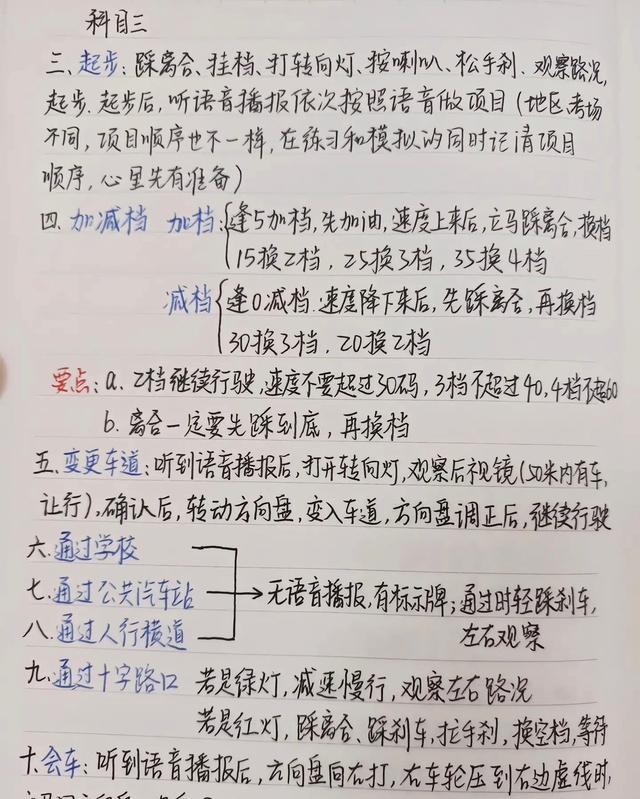 科目三
三、起步：踩离合、挂档、打转向灯、按喇叭、松手刹、观察路况,
起步.起步后,听语音播报依次按照语音做项目(地区、考场
不同,项目顺序也不一样,在练习和模拟的同时记清项目
顺序,心里先有准备)
四、加减档 加档:逢5加档,先加油,速度上来后,立马踩离合,换档
15换2档,25换3档,35换4档
减档 逢0减档.速度降下来后,先踩离合,再换档
30换3档,20换2档
要点:a.2档继续行驶,速度不要超过30码,3档不超过40,4档不超60
b.离合一定要先踩到底,再换档
五、变更车道:听到语音播报后,打开转向灯,观察后视镜(50米内有车,
让行),确认后,转动方向盘,变入车道,方向盘调正后,继续行驶
六.通过学校
七.通过公共汽车站 无语音播报,有标示牌;通过时轻踩刹车,
八.通过人行横道 左右观察
九.通过十字路口 若是绿灯,减速慢行,观察左右路况
若是红灯,踩离合、踩刹车,拉手刹,换空档,等待
十.会车:听到语音播报后,方向盘向右打,右车轮压到右边虚线时,